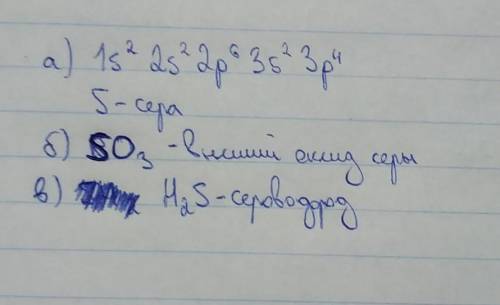 а) 1s² 2s² 2p⁶ 3s² 3p⁴
S - сера
б) SO₃ - высший оксид серы
в) H₂S - сероводород